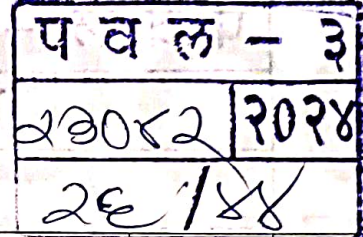 प व ल - ३
२३०४२ २०२४
२६/४४